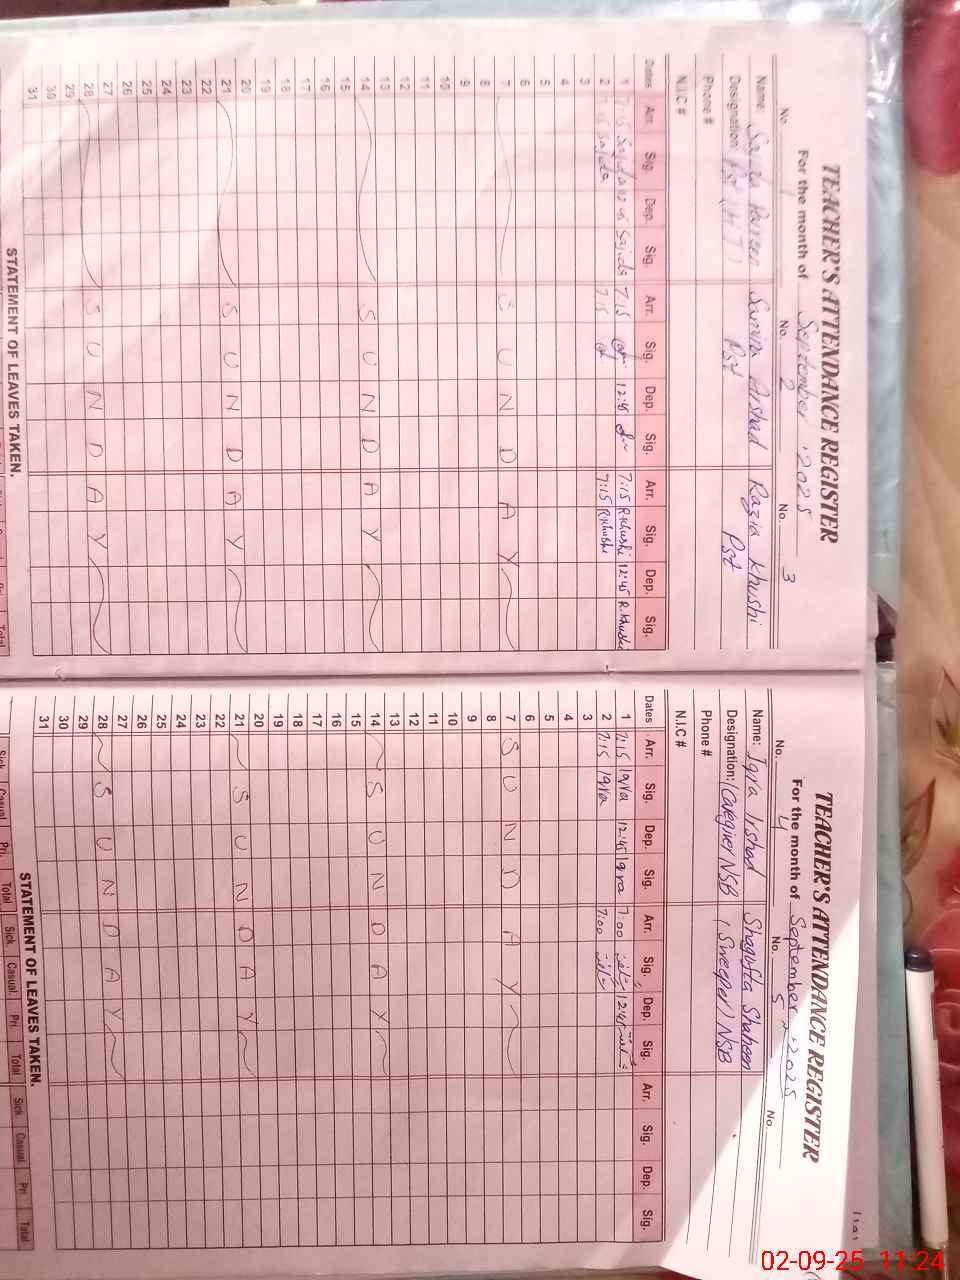 TEACHER'S ATTENDANCE REGISTER
For the month of September ,2025
No. 1 No. 2 No. 3
Name: Sajida Samina Arshad Razia Khushi
Designation: Pst (HT) Pst Pst
Phone #
N.I.C #
Dates Arr. Sig. Dep. Sig. Arr. Sig. Dep. Sig. Arr. Sig. Dep. Sig.
1 7:15 Sajida 12:45 Sajida 7:15 12:45 7:15 R.Khushi 12:45 R.Khushi
2 7:15 Sajida 7:15 7:15 R.Khushi
3
4
5
6
7 SUNDAY
8
9
10
11
12
13
14 SUNDAY
15
16
17
18
19
20
21 SUNDAY
22
23
24
25
26
27
28 SUNDAY
29
30
31
STATEMENT OF LEAVES TAKEN.
Pri. Total
TEACHER'S ATTENDANCE REGISTER
For the month of September ,2025
No. 4 No. 5 No.
Name: Iqra Irshad Shagufta Shaheen
Designation: (Caregiver) NSB (Sweeper) NSB
Phone #
N.I.C #
Dates Arr. Sig. Dep. Sig. Arr. Sig. Dep. Sig. Arr. Sig. Dep. Sig.
1 7:15 Iqra 12:45 Iqra 7:00 شگفتہ 12:45 شگفتہ
2 7:15 Iqra 7:00 شگفتہ
3
4
5
6
7 SUNDAY
8
9
10
11
12
13
14 SUNDAY
15
16
17
18
19
20
21 SUNDAY
22
23
24
25
26
27
28 SUNDAY
29
30
31
STATEMENT OF LEAVES TAKEN.
Sick. Casual. Pri. Total Sick. Casual. Pri. Total Sick. Casual. Pri. Total
02-09-25 11:24